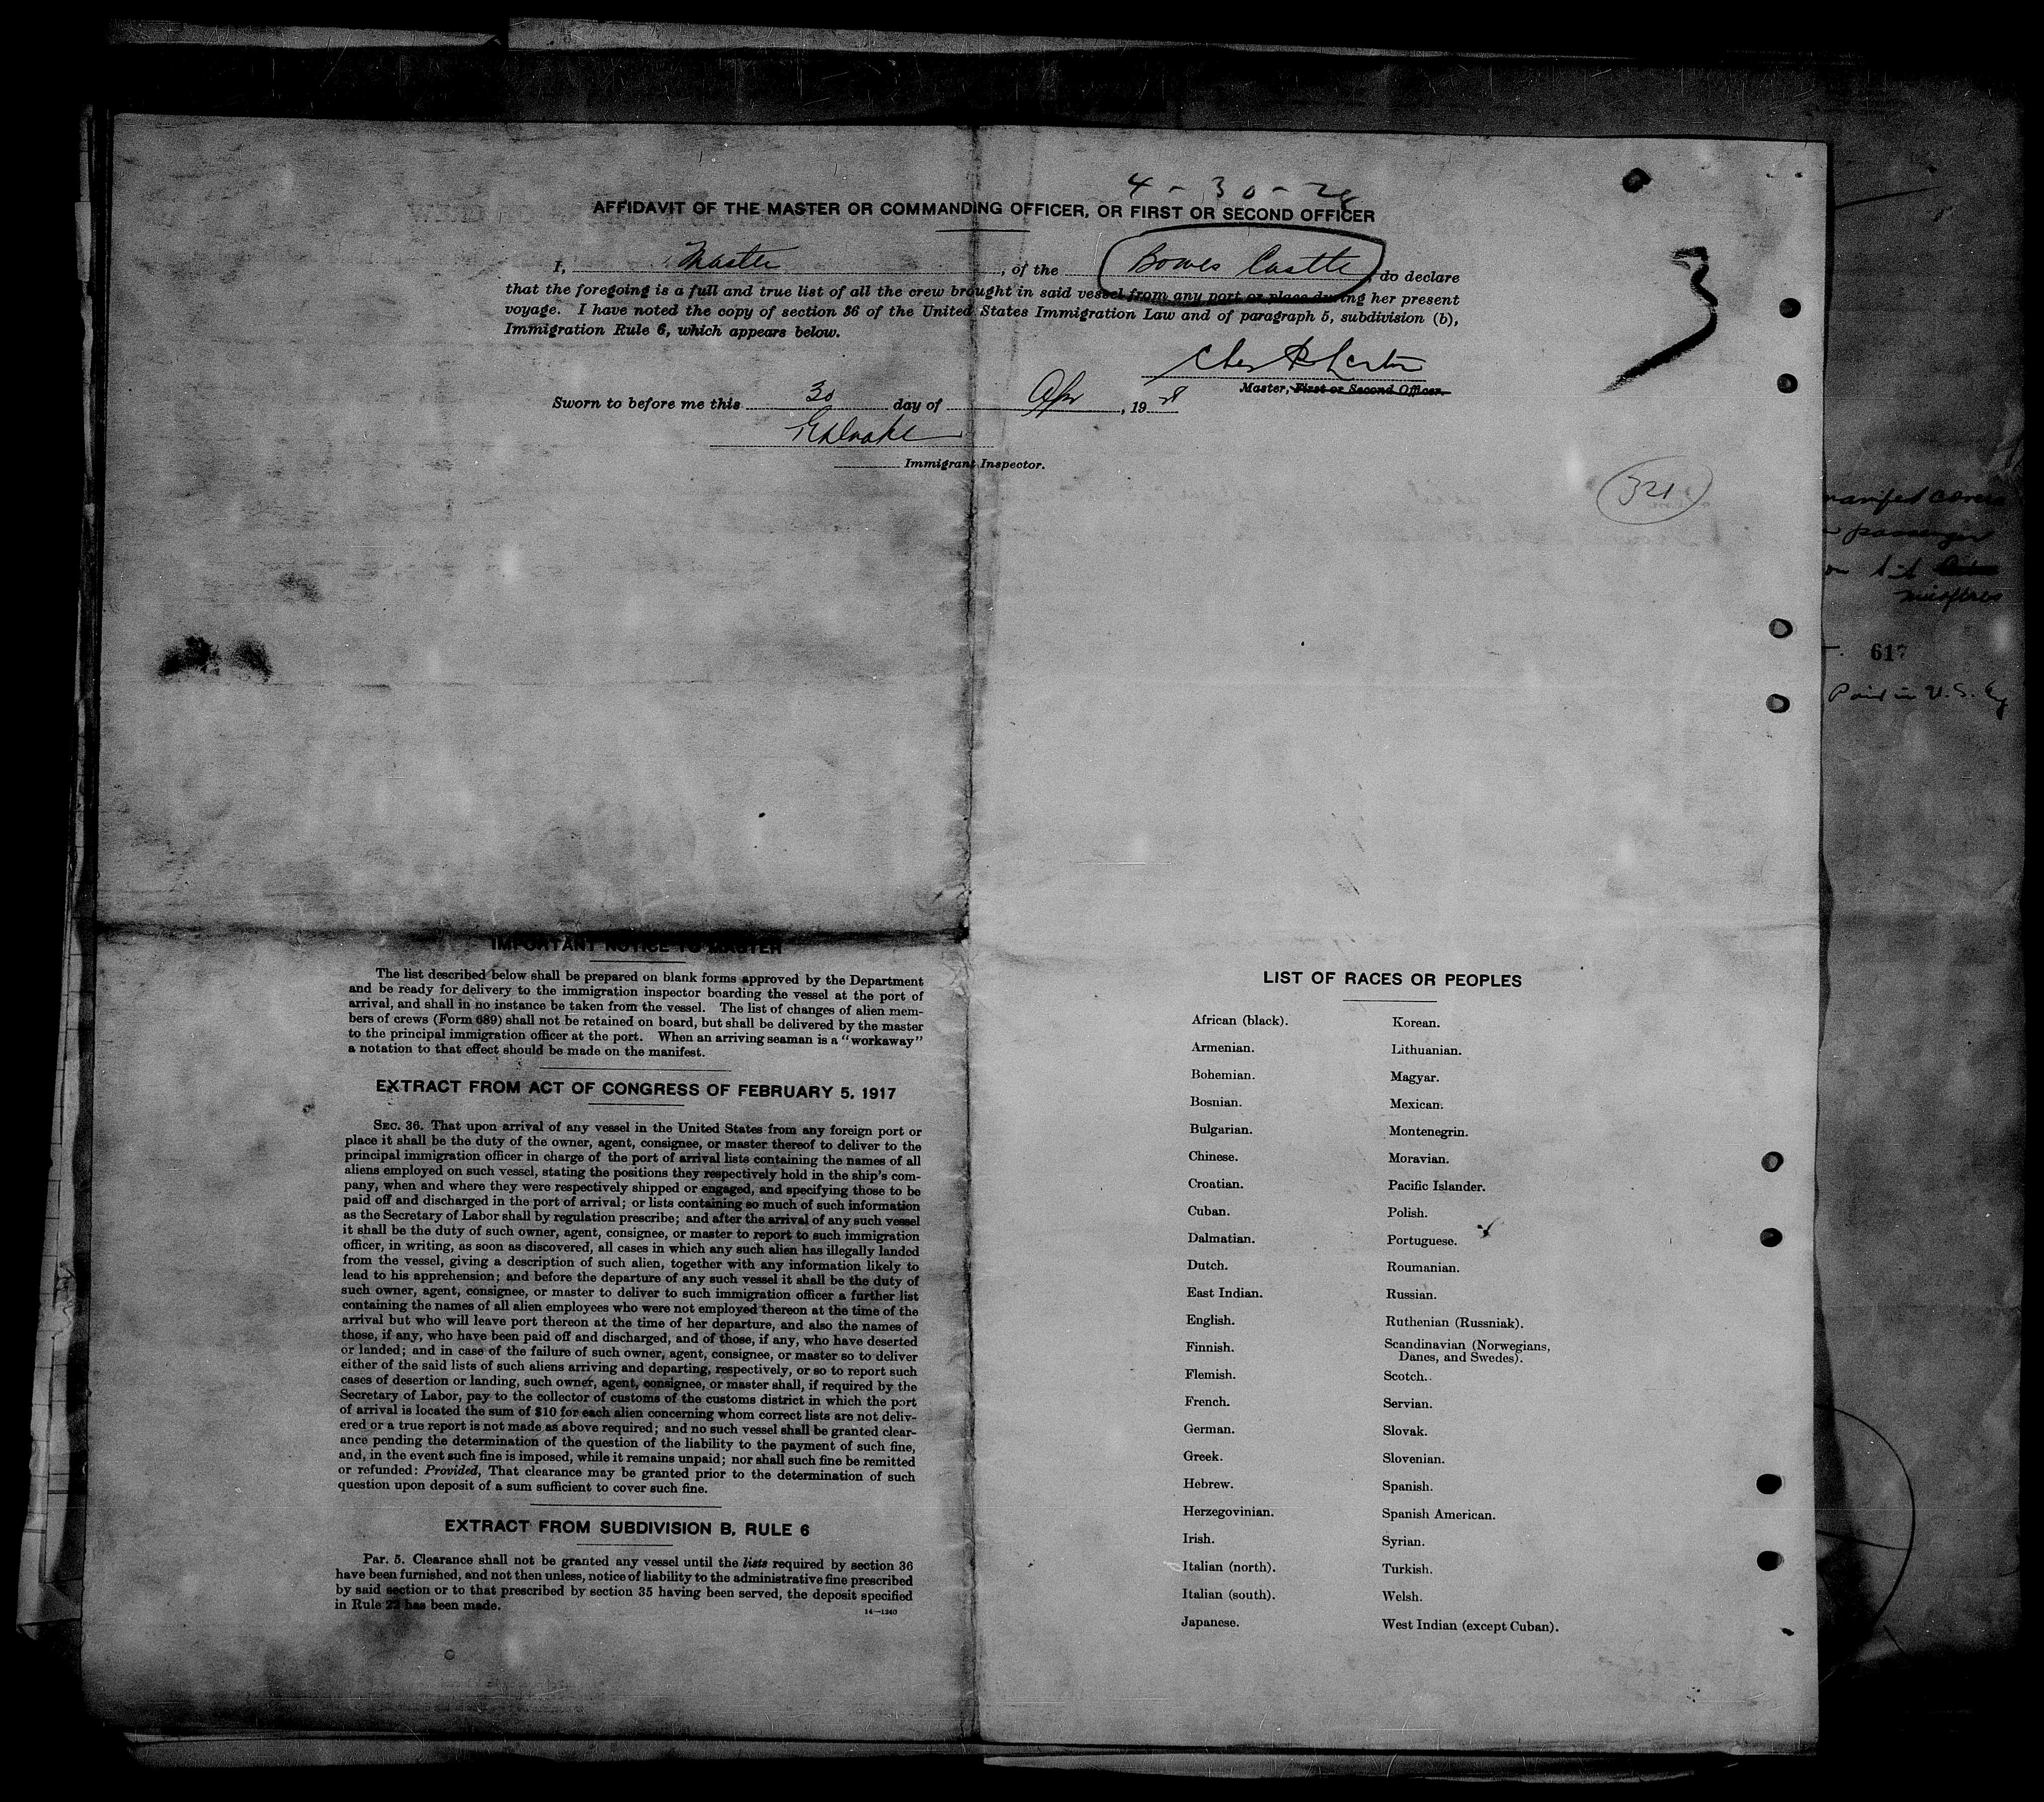 4-30-28
AFFIDAVIT OF THE MASTER OR COMMANDING OFFICER, OR FIRST OR SECOND OFFICER
I, Master, of the Bowes Castle, do declare
that the foregoing is a full and true list of all the crew brought in said vessel from any port or place during her present
voyage. I have noted the copy of section 36 of the United States Immigration Law and of paragraph 5, subdivision (b),
Immigration Rule 6, which appears below.
3
Master, First or Second Officer.
Sworn to before me this 30 day of Apr, 1928
Immigrant Inspector.
321
manifest covers
passenger
617
Paid in U.S. Cy
IMPORTANT NOTICE TO MASTER
The list described below shall be prepared on blank forms approved by the Department
and be ready for delivery to the immigration inspector boarding the vessel at the port of
arrival, and shall in no instance be taken from the vessel. The list of changes of alien mem-
bers of crews (Form 689) shall not be retained on board, but shall be delivered by the master
to the principal immigration officer at the port. When an arriving seaman is a "workaway"
a notation to that effect should be made on the manifest.
EXTRACT FROM ACT OF CONGRESS OF FEBRUARY 5, 1917
SEC. 36. That upon arrival of any vessel in the United States from any foreign port or
place it shall be the duty of the owner, agent, consignee, or master thereof to deliver to the
principal immigration officer in charge of the port of arrival lists containing the names of all
aliens employed on such vessel, stating the positions they respectively hold in the ship's com-
pany, when and where they were respectively shipped or engaged, and specifying those to be
paid off and discharged in the port of arrival; or lists containing so much of such information
as the Secretary of Labor shall by regulation prescribe; and after the arrival of any such vessel
it shall be the duty of such owner, agent, consignee, or master to report to such immigration
officer, in writing, as soon as discovered, all cases in which any such alien has illegally landed
from the vessel, giving a description of such alien, together with any information likely to
lead to his apprehension; and before the departure of any such vessel it shall be the duty of
such owner, agent, consignee, or master to deliver to such immigration officer a further list
containing the names of all alien employees who were not employed thereon at the time of the
arrival but who will leave port thereon at the time of her departure, and also the names of
those, if any, who have been paid off and discharged, and of those, if any, who have deserted
or landed; and in case of the failure of such owner, agent, consignee, or master so to deliver
either of the said lists of such aliens arriving and departing, respectively, or so to report such
cases of desertion or landing, such owner, agent, consignee, or master shall, if required by the
Secretary of Labor, pay to the collector of customs of the customs district in which the port
of arrival is located the sum of $10 for each alien concerning whom correct lists are not deliv-
ered or a true report is not made as above required; and no such vessel shall be granted clear-
ance pending the determination of the question of the liability to the payment of such fine,
and, in the event such fine is imposed, while it remains unpaid; nor shall such fine be remitted
or refunded: Provided, That clearance may be granted prior to the determination of such
question upon deposit of a sum sufficient to cover such fine.
EXTRACT FROM SUBDIVISION B, RULE 6
Par. 5. Clearance shall not be granted any vessel until the lists required by section 36
have been furnished, and not then unless, notice of liability to the administrative fine prescribed
by said section or to that prescribed by section 35 having been served, the deposit specified
in Rule 22 has been made.
14—1240
LIST OF RACES OR PEOPLES
African (black).
Armenian.
Bohemian.
Bosnian.
Bulgarian.
Chinese.
Croatian.
Cuban.
Dalmatian.
Dutch.
East Indian.
English.
Finnish.
Flemish.
French.
German.
Greek.
Hebrew.
Herzegovinian.
Irish.
Italian (north).
Italian (south).
Japanese.
Korean.
Lithuanian.
Magyar.
Mexican.
Montenegrin.
Moravian.
Pacific Islander.
Polish.
Portuguese.
Roumanian.
Russian.
Ruthenian (Russniak).
Scandinavian (Norwegians,
Danes, and Swedes).
Scotch.
Servian.
Slovak.
Slovenian.
Spanish.
Spanish American.
Syrian.
Turkish.
Welsh.
West Indian (except Cuban).